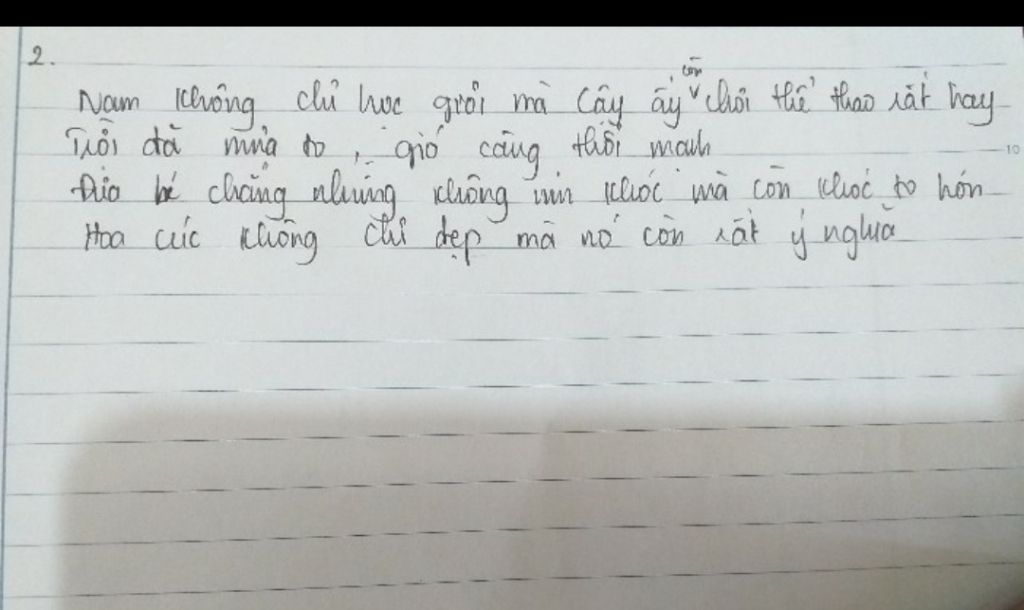 2.
Nam không chỉ học giỏi mà cậy ấy còn chơi thể thao rất hay
Trời đã mưa to, gió càng thổi mạnh
Đứa bé chẳng những không nín khóc mà còn khóc to hơn
Hoa cúc không chỉ đẹp mà nó còn rất ý nghĩa